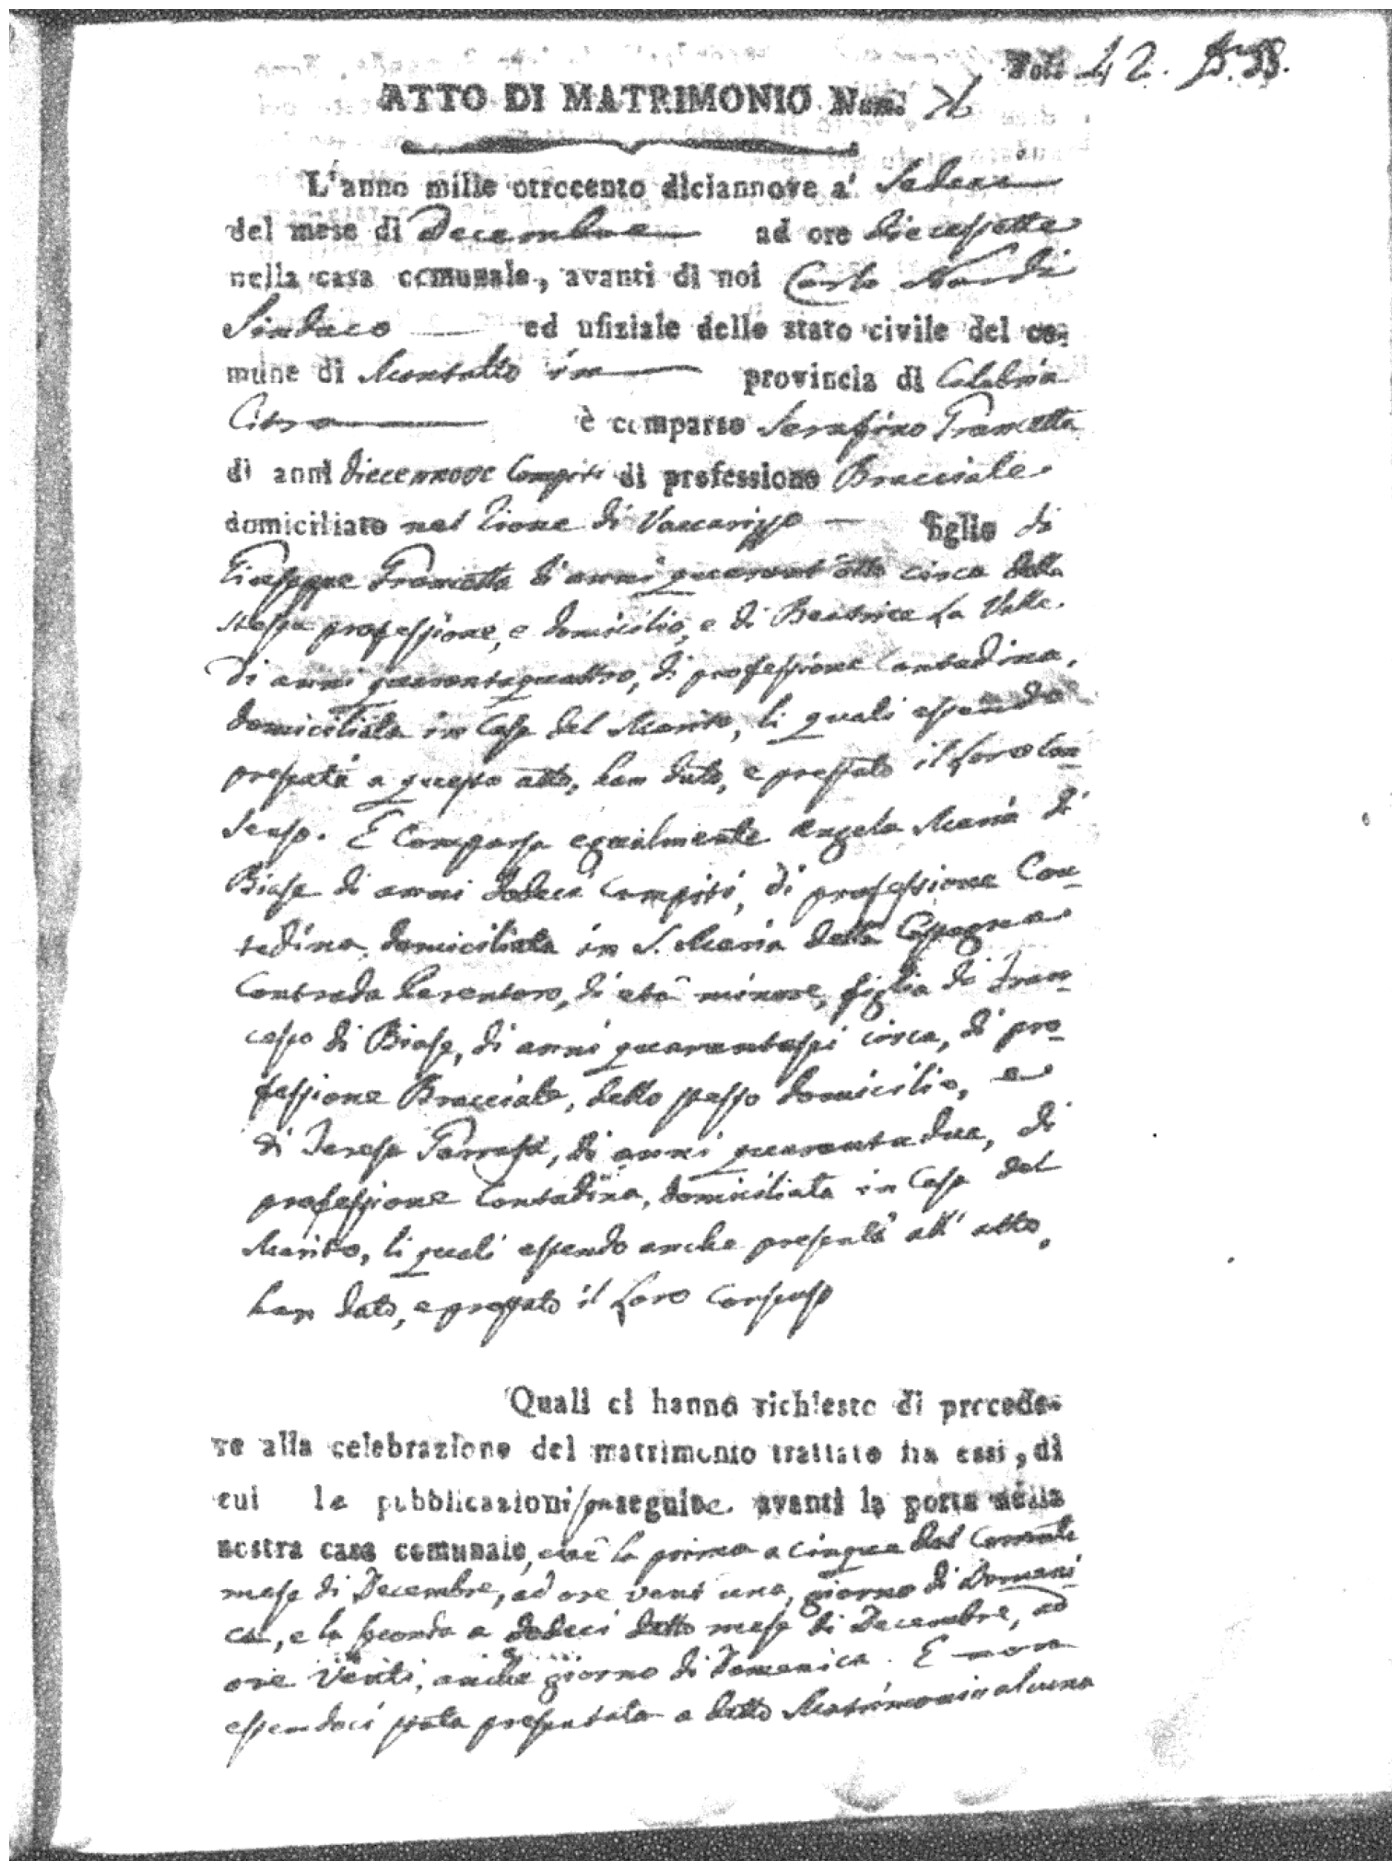 Fol: 42.
ATTO DI MATRIMONIO Num.
L'anno mille ottocento diciannove a' Sedeci
del mese di Decembre ad ore diecessette
nella casa comunale, avanti di noi Carlo Nardi
Sindaco ed ufiziale dello stato civile del co-
mune di Montalto in provincia di Calabria
Citra è comparso Serafino Trametta
di anni diecennove compiti di professione Bracciale
domiciliato nel Rione di Vaccarizzo figlio di
Giuseppe Trametta di anni quarant'otto circa della
stessa professione, e domicilio, e di Beatrice La Valle
di anni quarantaquattro, di professione Contadina,
domiciliata in Casa del Marito, li quali essendo
presenti a questo atto, han dato, e prestato il loro con-
senso. E comparsa egualmente Angela Maria di
Biase di anni dodeci compiti, di professione Con-
tadina, domiciliata in S. Maria della
Contrada di età minore, figlia di Fran-
cesco di Biase, di anni quarantasei circa, di pro-
fessione Bracciale, dello stesso domicilio, e
di Teresa di anni quarantadue, di
professione Contadina, domiciliata in Casa del
Marito, li quali essendo anche presenti all'atto,
han dato, e prestato il loro consenso
Quali ci hanno richiesto di procede-
re alla celebrazione del matrimonio trattato fra essi, di
cui le pubblicazioni seguite avanti la porta della
nostra casa comunale, cioè la prima a cinque del corrente
mese di Decembre, ad ore vent'una, giorno di Domeni-
ca, e la seconda a dodeci detto mese di Decembre, ad
ore venti, anche giorno di Domenica. E non
essendoci stata presentata a detto Matrimonio alcuna